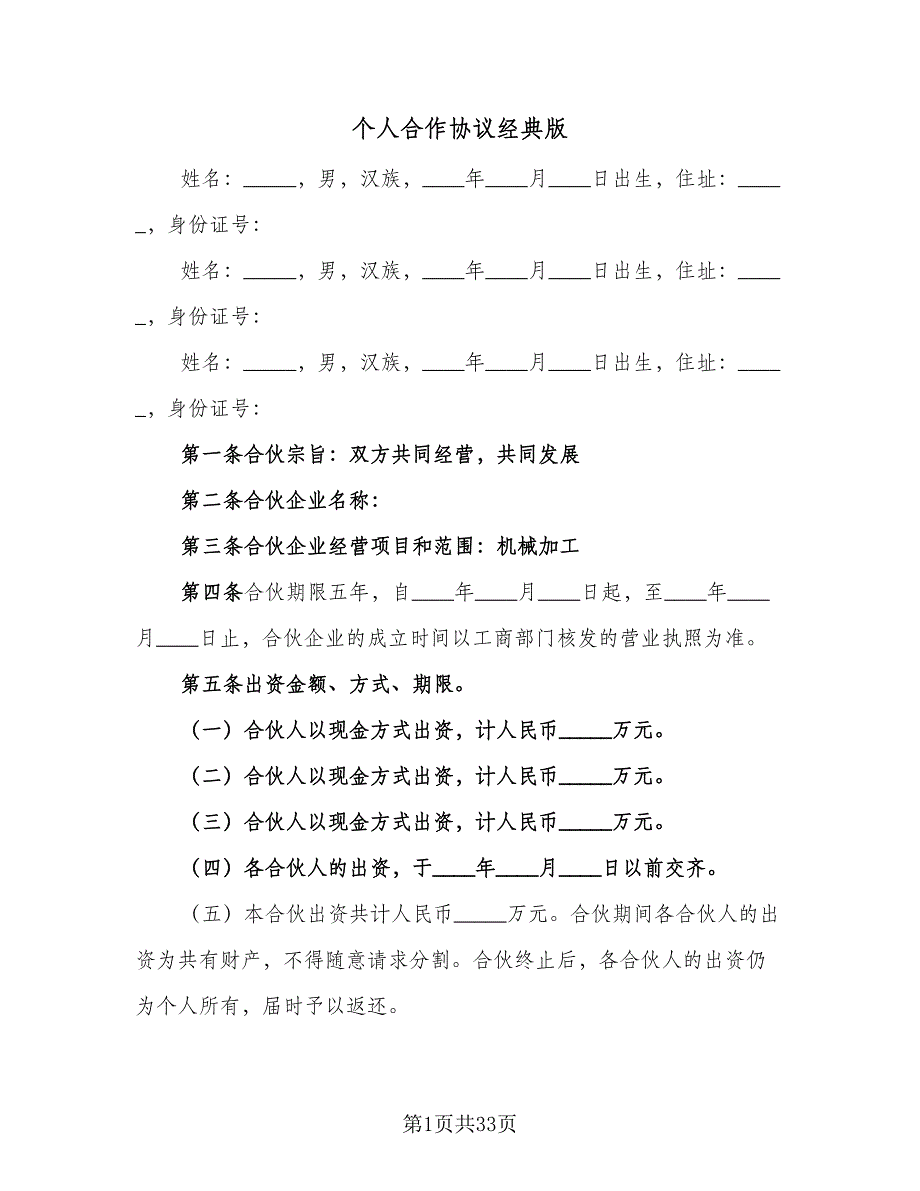 个人合作协议经典版
姓名：_____，男，汉族，____年____月____日出生，住址：____
_，身份证号：
姓名：_____，男，汉族，____年____月____日出生，住址：____
_，身份证号：
姓名：_____，男，汉族，____年____月____日出生，住址：____
_，身份证号：
第一条合伙宗旨：双方共同经营，共同发展
第二条合伙企业名称：
第三条合伙企业经营项目和范围：机械加工
第四条合伙期限五年，自____年____月____日起，至____年____
月____日止，合伙企业的成立时间以工商部门核发的营业执照为准。
第五条出资金额、方式、期限。
（一）合伙人以现金方式出资，计人民币_____万元。
（二）合伙人以现金方式出资，计人民币_____万元。
（三）合伙人以现金方式出资，计人民币_____万元。
（四）各合伙人的出资，于____年____月____日以前交齐。
（五）本合伙出资共计人民币_____万元。合伙期间各合伙人的出
资为共有财产，不得随意请求分割。合伙终止后，各合伙人的出资仍
为个人所有，届时予以返还。
第1页共33页